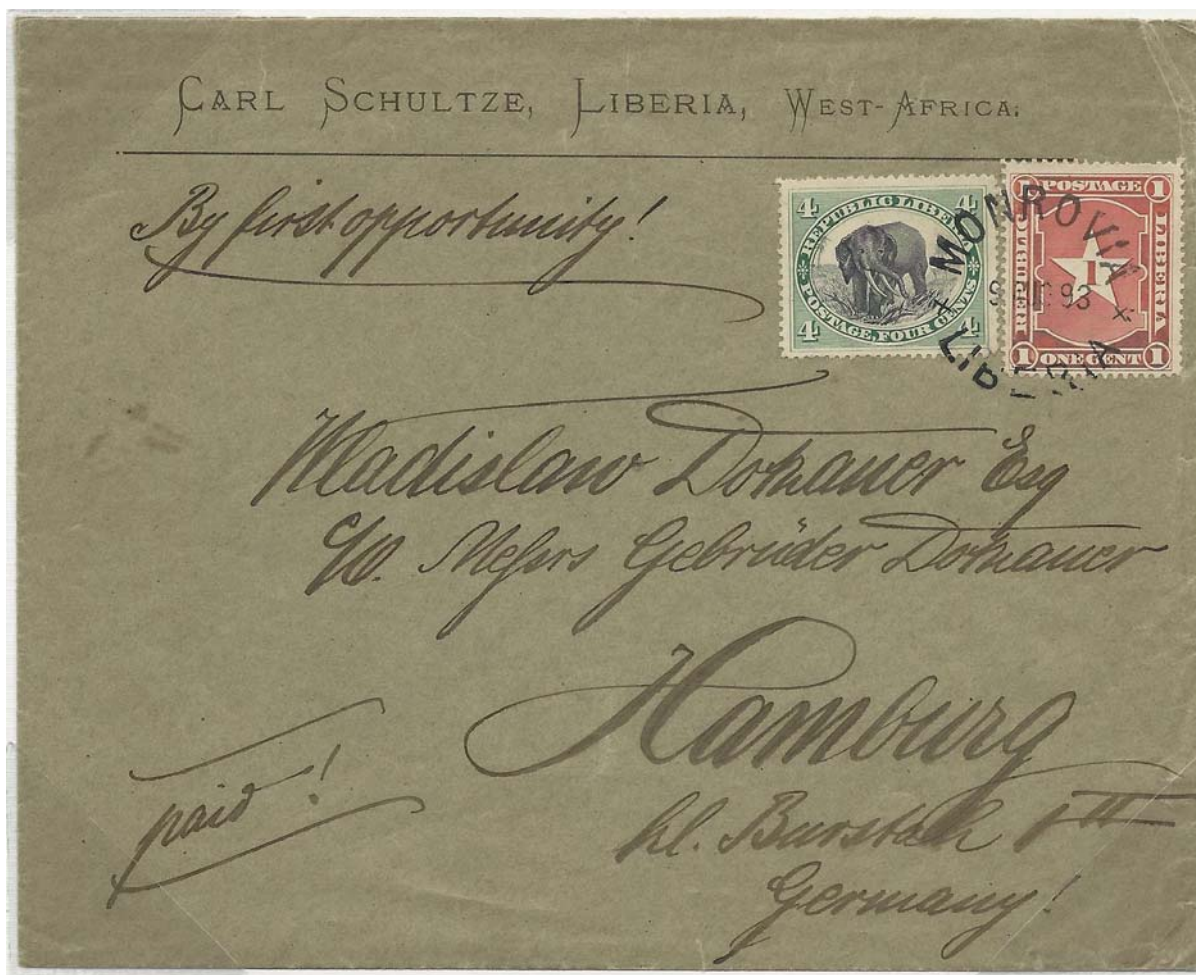 CARL SCHULTZE, LIBERIA, WEST-AFRICA.
By first opportunity!
4 4
REPUBLIC LIBERIA
POSTAGE, FOUR CENTS
4 4
1 POSTAGE 1
REPUBLIC LIBERIA
1
1 ONE GENT 1
MONROVIA
93
LIBERIA
Wladislaw Dotzauer Esq
c/o. Messrs Gebrüder Dotzauer
Hamburg
kl. Burstah 1 III
Germany!
paid!